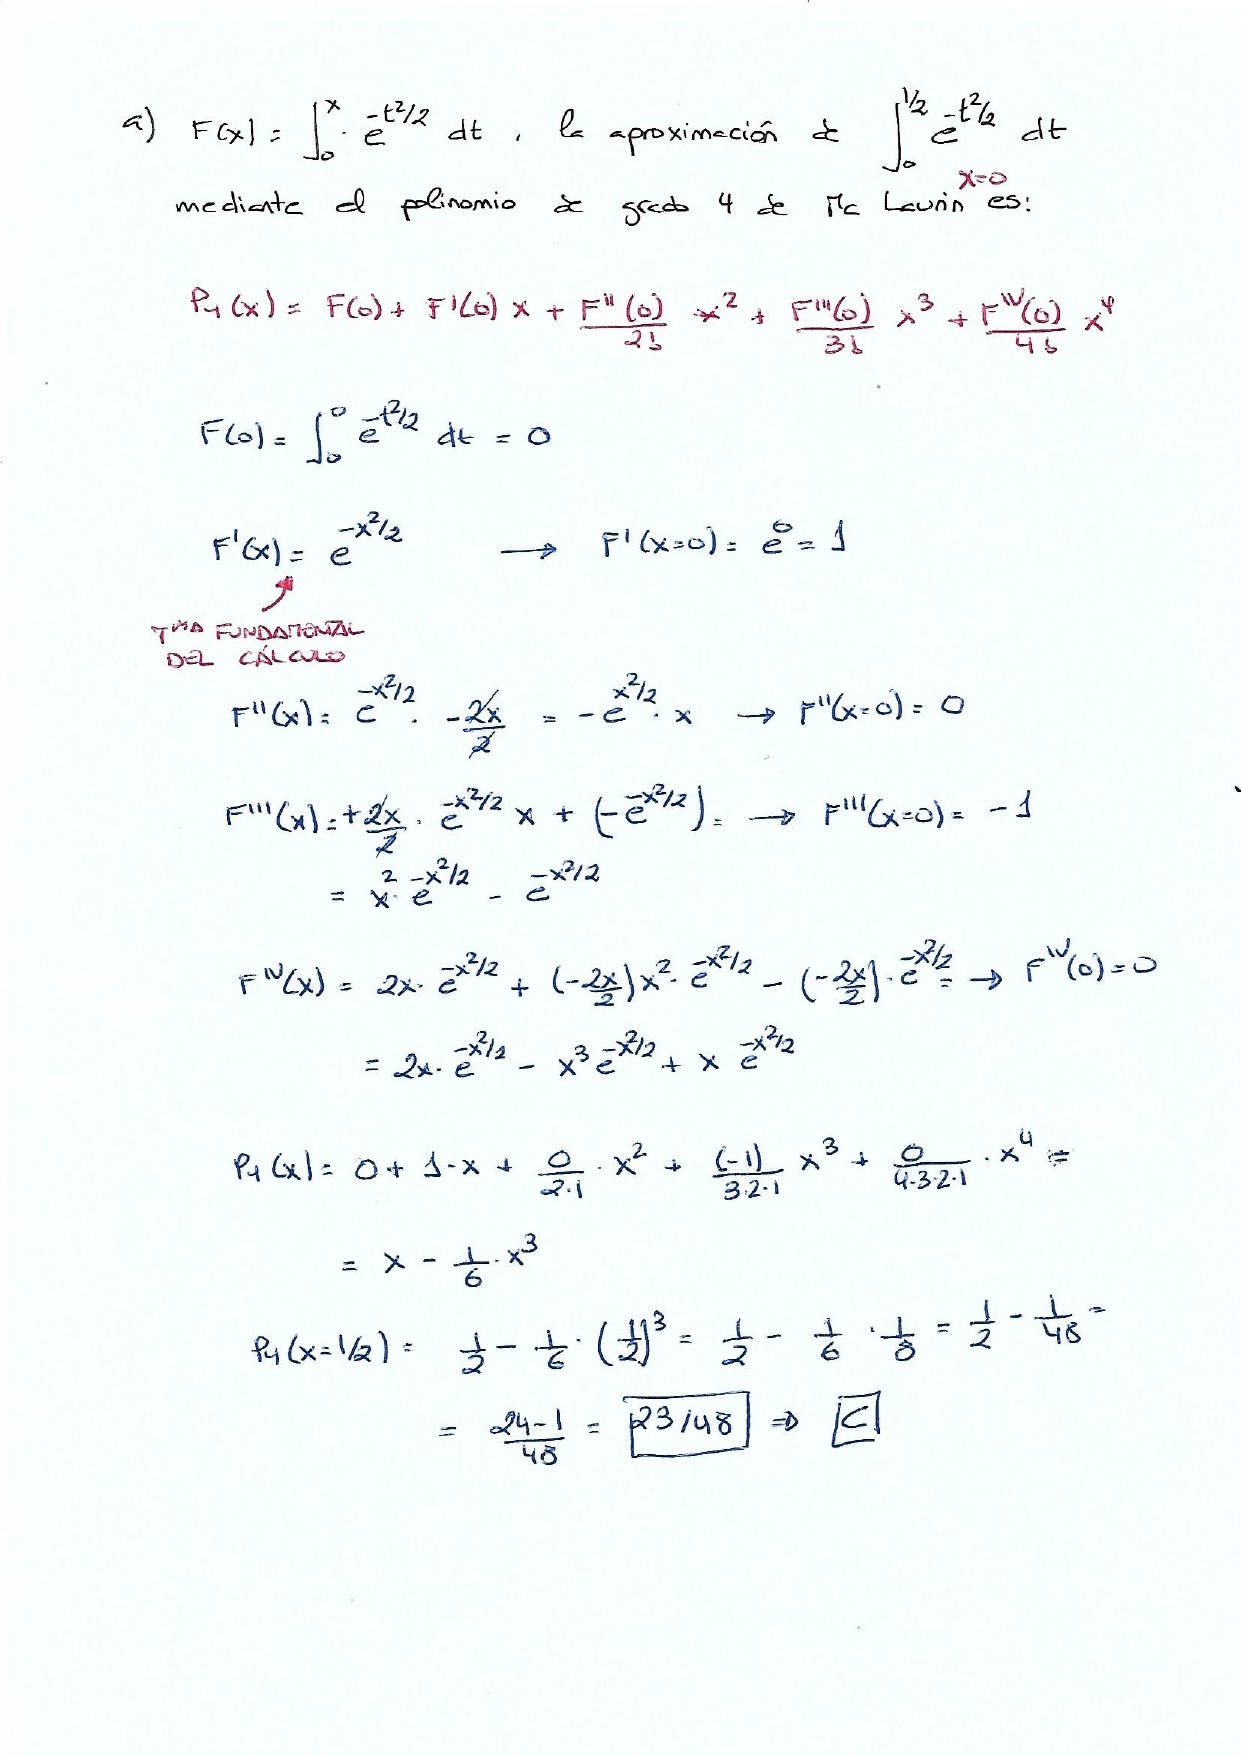 a) F(x) = ∫₀ˣ e^(-t²/2) dt , la aproximación de ∫₀^(1/2) e^(-t²/2) dt
x=0
mediante el polinomio de grado 4 de Mc Laurin es:
P₄(x) = F(0) + F'(0) x + F''(0)/2! x² + F'''(0)/3! x³ + F^IV(0)/4! x⁴
F(0) = ∫₀⁰ e^(-t²/2) dt = 0
F'(x) = e^(-x²/2) → F'(x=0) = e⁰ = 1
TMA FUNDAMENTAL
DEL CÁLCULO
F''(x) = e^(-x²/2) · -2x/2 = - e^(x²/2) · x → F''(x=0) = 0
F'''(x) = + 2x/2 · e^(-x²/2) x + (-e^(-x²/2)) = → F'''(x=0) = -1
= x² · e^(-x²/2) - e^(-x²/2)
F^IV(x) = 2x · e^(-x²/2) + (-2x/2) x² · e^(-x²/2) - (-2x/2) · e^(-x²/2) = → F^IV(0) = 0
= 2x · e^(-x²/2) - x³ e^(-x²/2) + x e^(-x²/2)
P₄(x) = 0 + 1·x + 0/2·1 · x² + (-1)/3·2·1 x³ + 0/4·3·2·1 · x⁴ =
= x - 1/6 · x³
P₄(x=1/2) = 1/2 - 1/6 · (1/2)³ = 1/2 - 1/6 · 1/8 = 1/2 - 1/48 =
= 24-1/48 = 23/48 ⇒ C